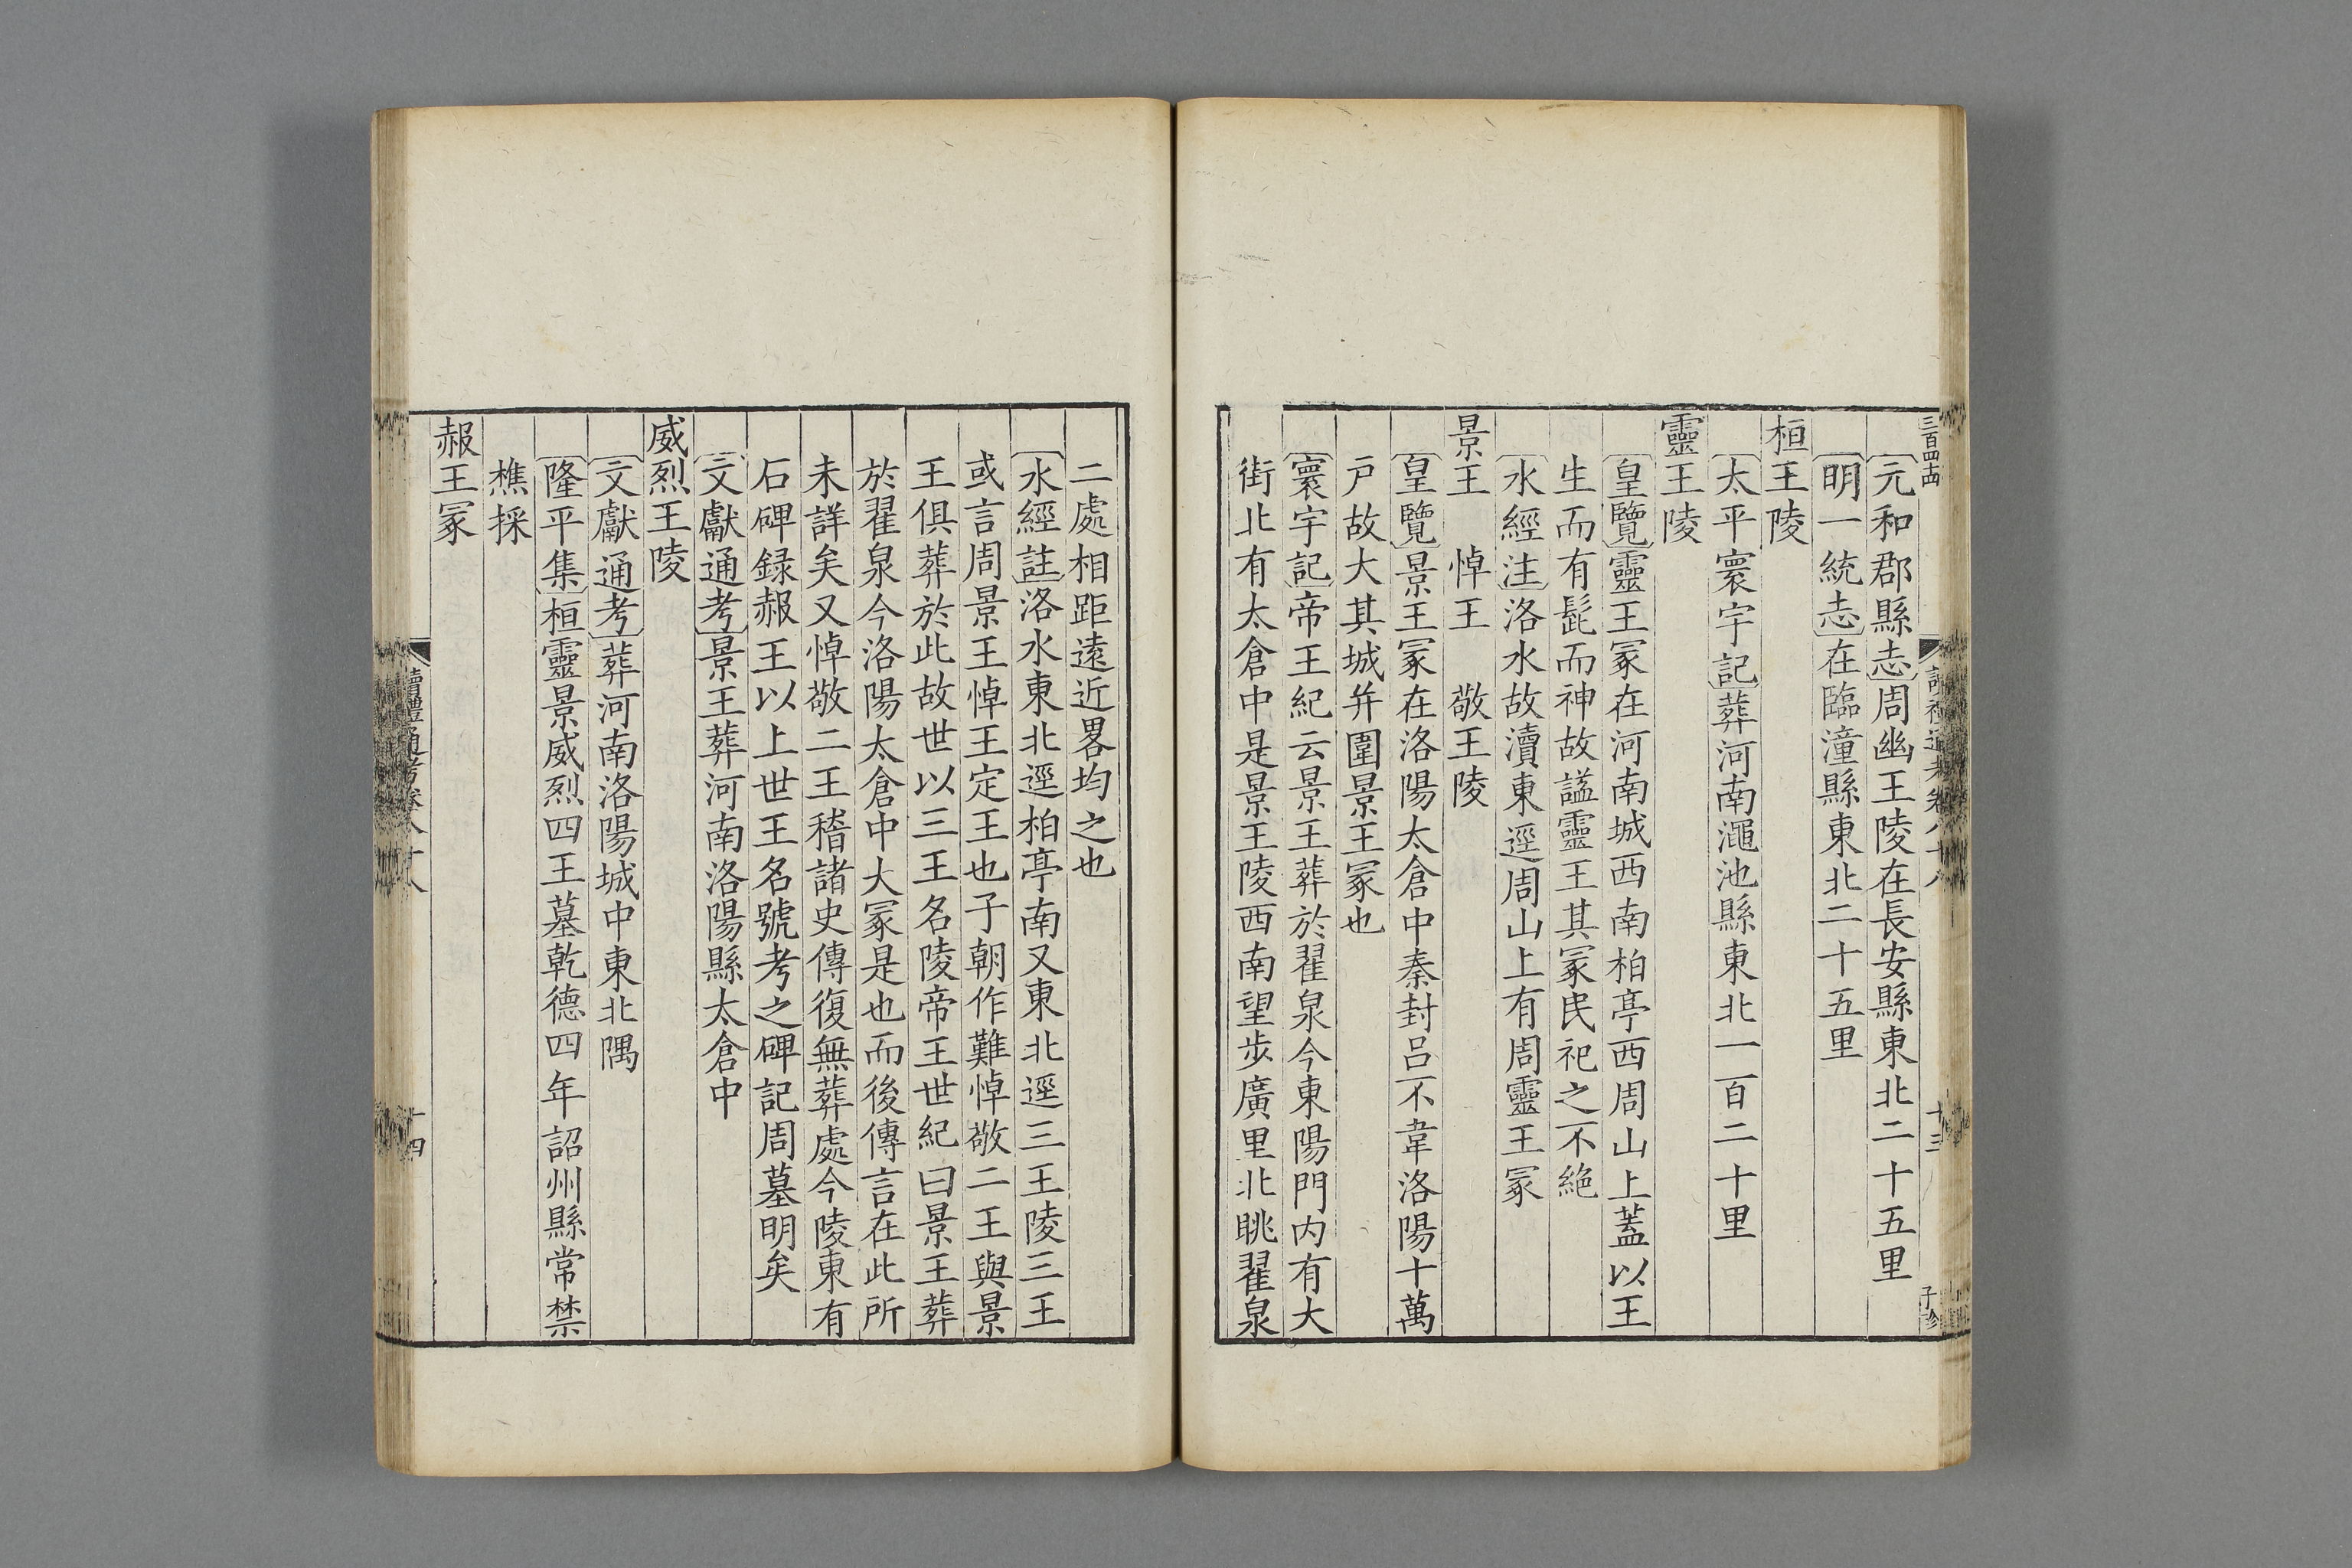 元和郡縣志周幽王陵在長安縣東北二十五里
明一統志在臨潼縣東北二十五里
桓王陵
太平寰宇記葬河南澠池縣東北一百二十里
靈王陵
皇覽靈王冢在河南城西南柏亭西周山上蓋以王
生而有髭而神故謚靈王其冢民祀之不絶
水經注洛水故瀆東逕周山上有周靈王冢
景王 悼王 敬王陵
皇覽景王冢在洛陽太倉中秦封呂不韋洛陽十萬
戸故大其城并圍景王冢也
寰宇記帝王紀云景王葬於翟泉今東陽門内有大
街北有太倉中是景王陵西南望步廣里北眺翟泉
二處相距遠近畧均之也
水經註洛水東北逕柏亭南又東北逕三王陵三王
或言周景王悼王定王也子朝作難悼敬二王與景
王俱葬於此故世以三王名陵帝王世紀曰景王葬
於翟泉今洛陽太倉中大冢是也而後傳言在此所
未詳矣又悼敬二王稽諸史傳復無葬處今陵東有
石碑録赧王以上世王名號考之碑記周墓明矣
文獻通考景王葬河南洛陽縣太倉中
威烈王陵
文獻通考葬河南洛陽城中東北隅
隆平集桓靈景威烈四王墓乾德四年詔州縣常禁
樵採
赧王冢
讀禮通考卷八十八
十四